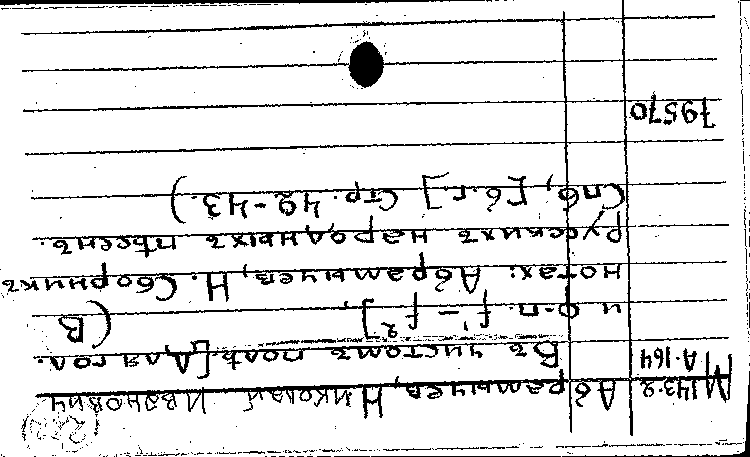 М143.2 Абрамычев, Николай Иванович
А.164 Въ чистомъ полѣ. [Для гол.
и ф-п. f¹ – f²]. (В
нотах: Абрамычев, Н. Сборникъ
русскихъ народныхъ пѣсенъ.
Спб, [б.г.] Стр. 42-43.)
79570